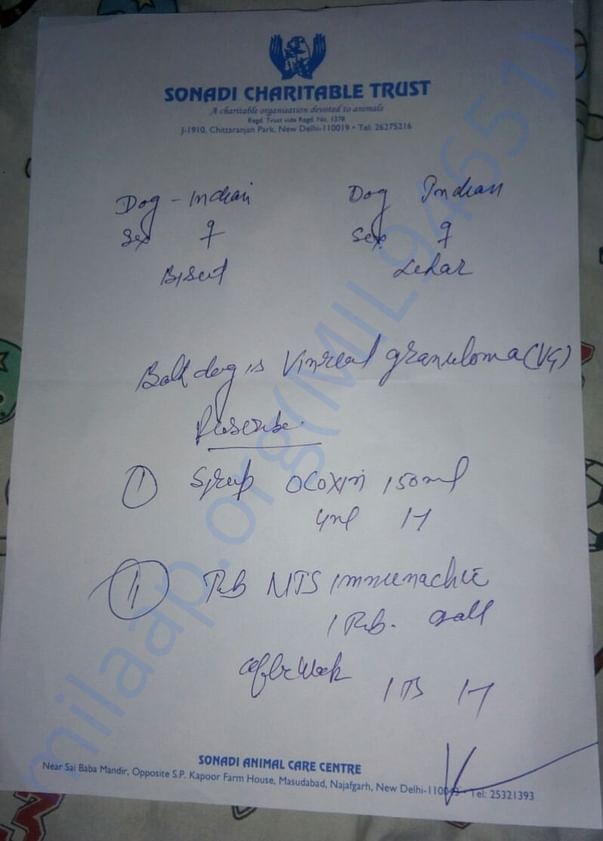 SONADI CHARITABLE TRUST
A charitable organisation devoted to animals
Regd. Trust vide Regd. No. 1378
J-1910, Chittaranjan Park, New Delhi-110019 • Tel: 26275216
Dog - Indian
Sex ♀
Dog Indian
Sex ♀
Lehar
Both dog is Vinreal granuloma (VG)
Prescribe
① Syrup Ocoxin 150ml
4ml
② Tab NTS
1 Tab.
after Week
SONADI ANIMAL CARE CENTRE
Near Sai Baba Mandir, Opposite S.P. Kapoor Farm House, Masudabad, Najafgarh, New Delhi- Tel: 25321393
milaap.org(MIL946511)